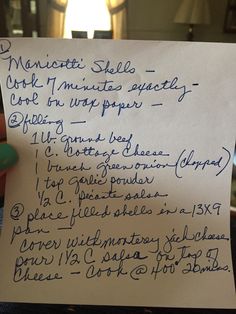 ①
Manicotti Shells –
Cook 7 minutes exactly –
cool on wax paper –
② filling –
1 lb. ground beef
1 C. Cottage Cheese
1 bunch green onion (chopped)
1 tsp garlic powder
½ C. Picante salsa
③ place filled shells in a 13X9
pan –
cover with monterey jack cheese
pour 1 1/2 C salsa on top of
Cheese – Cook @ 400° 20 mins.